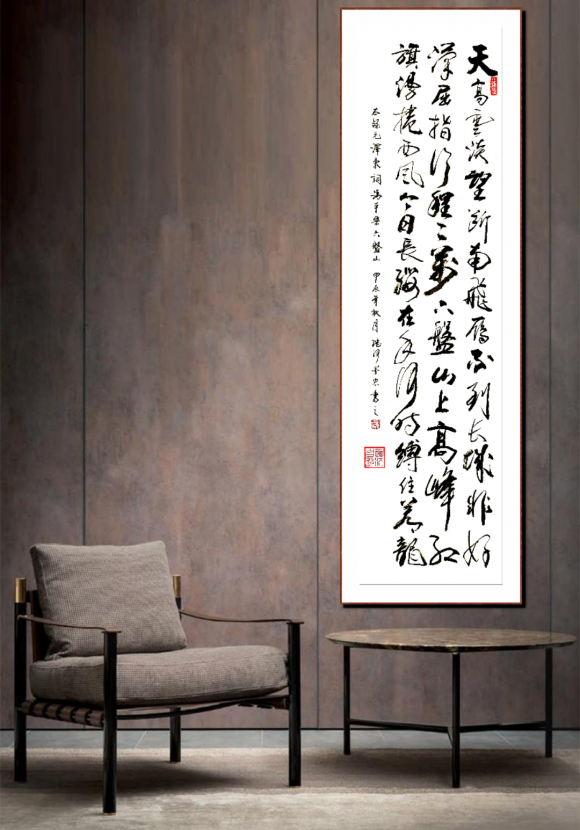 天高雲淡望斷南飛雁不到长城非好
漢屈指行程二萬六盤山上高峰红
旗漫捲西風今日長纓在手何时縛住蒼龍
錄毛澤東詞清平樂六盤山 甲辰年秋月 書之